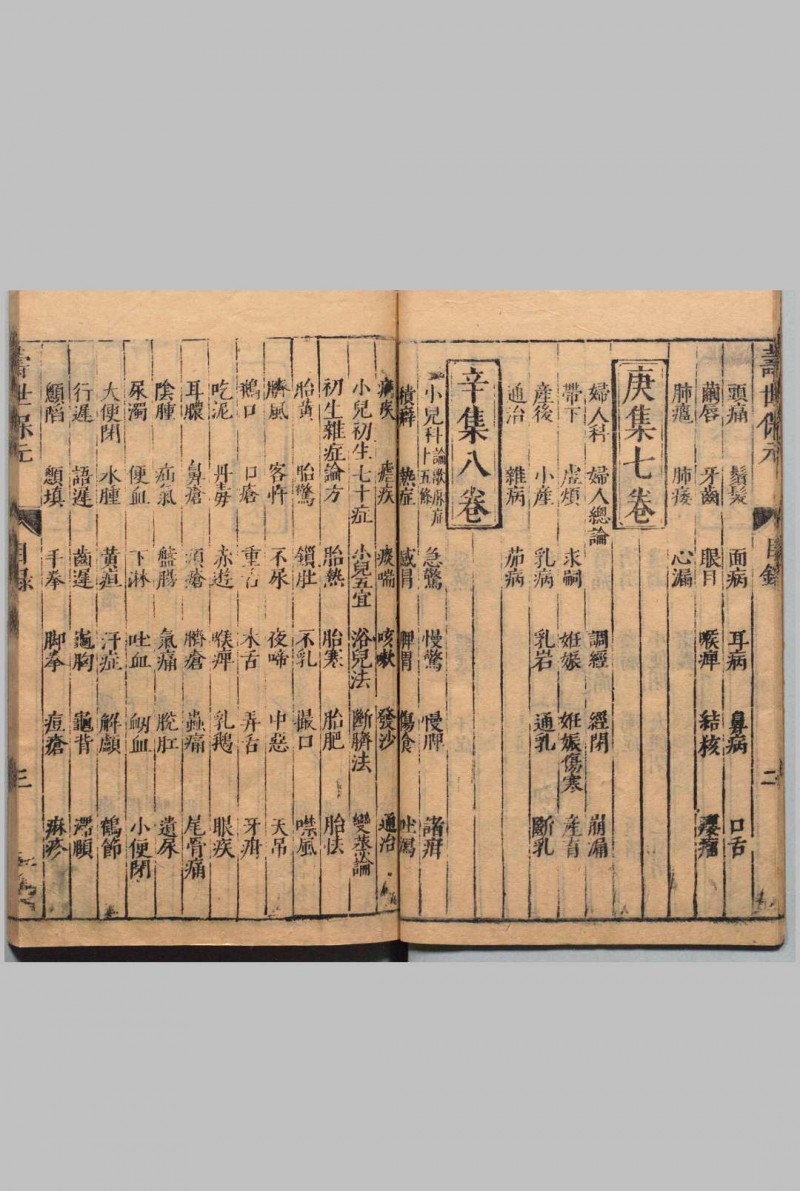 壽世保元 目錄 二
頭痛 鬚髮 面病 耳病 鼻病 口舌
繭唇 牙齒 眼目 喉痺 結核 癭瘤
肺癰 肺痿 心漏
庚集七卷
婦人科 婦人總論 調經 經閉 崩漏
帶下 虛煩 求嗣 姙娠 姙娠傷寒 產育
產後 小產 乳病 乳岩 通乳 斷乳
通治 雜病 茄病
辛集八卷
小兒科 急驚 慢驚 慢脾 諸疳
積癖 熱症 感冒 脾胃 傷食 吐瀉
痢疾 瘧疾 痰喘 咳嗽 發沙 通治
小兒初生七十症 小兒五宜 浴兒法 斷臍法 變蒸論
初生雜症論方 胎熱 胎寒 胎肥 胎怯
胎黃 胎驚 鎖肚 不乳 撮口 噤風
臍風 客忤 不尿 夜啼 中惡 天吊
鵝口 口瘡 重舌 木舌 弄舌 牙疳
吃泥 丹毒 赤遊 喉痺 乳鵝 眼疾
耳膿 鼻瘡 頭瘡 臍瘡 蟲痛 尾骨痛
陰腫 疝氣 盤腸 氣痛 脫肛 遺尿
尿濁 便血 下淋 吐血 衂血 小便閉
大便閉 水腫 黃疸 汗症 解顱 鶴節
行遲 語遲 齒遲 龜胸 龜背 滯頤
顖陷 顖填 手拳 脚拳 痘瘡 麻疹
壽世保元 目錄 三